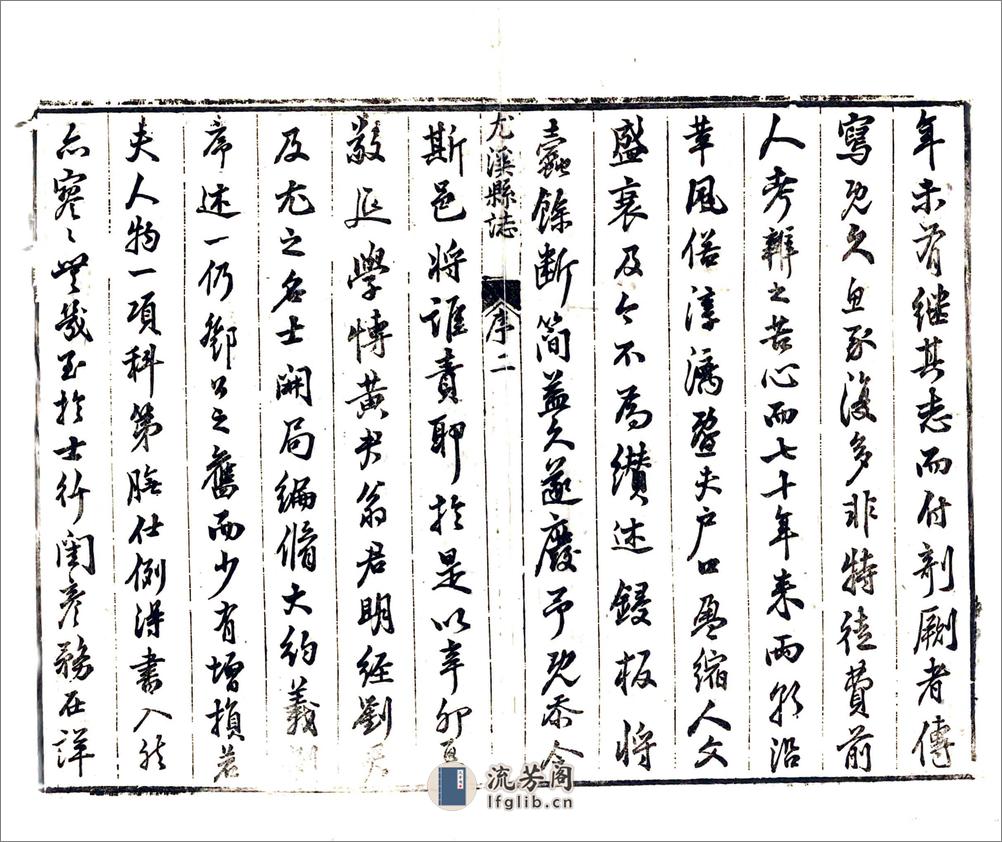 年未有继其志而付剞劂者傳
寫既久魚豕滋多非特徒費前
人考辨之苦心而七十年来兩朝沿
革風俗淳漓暨夫户口盈縮人文
盛衰及今不為纘述鋟板將
蠹餘斷簡益久遂廢予既忝令
尤溪縣誌
序二
斯邑將誰責耶於是以辛卯夏
敬延學博黄夫翁君明經劉君
及尤之名士開局編脩大約義
序述一仍鄧公之舊而少有增損若
夫人物一項科第膴仕例得書入然
亦寥〻無幾至於士行閨彦務在詳
流芳阁
lfglib.cn